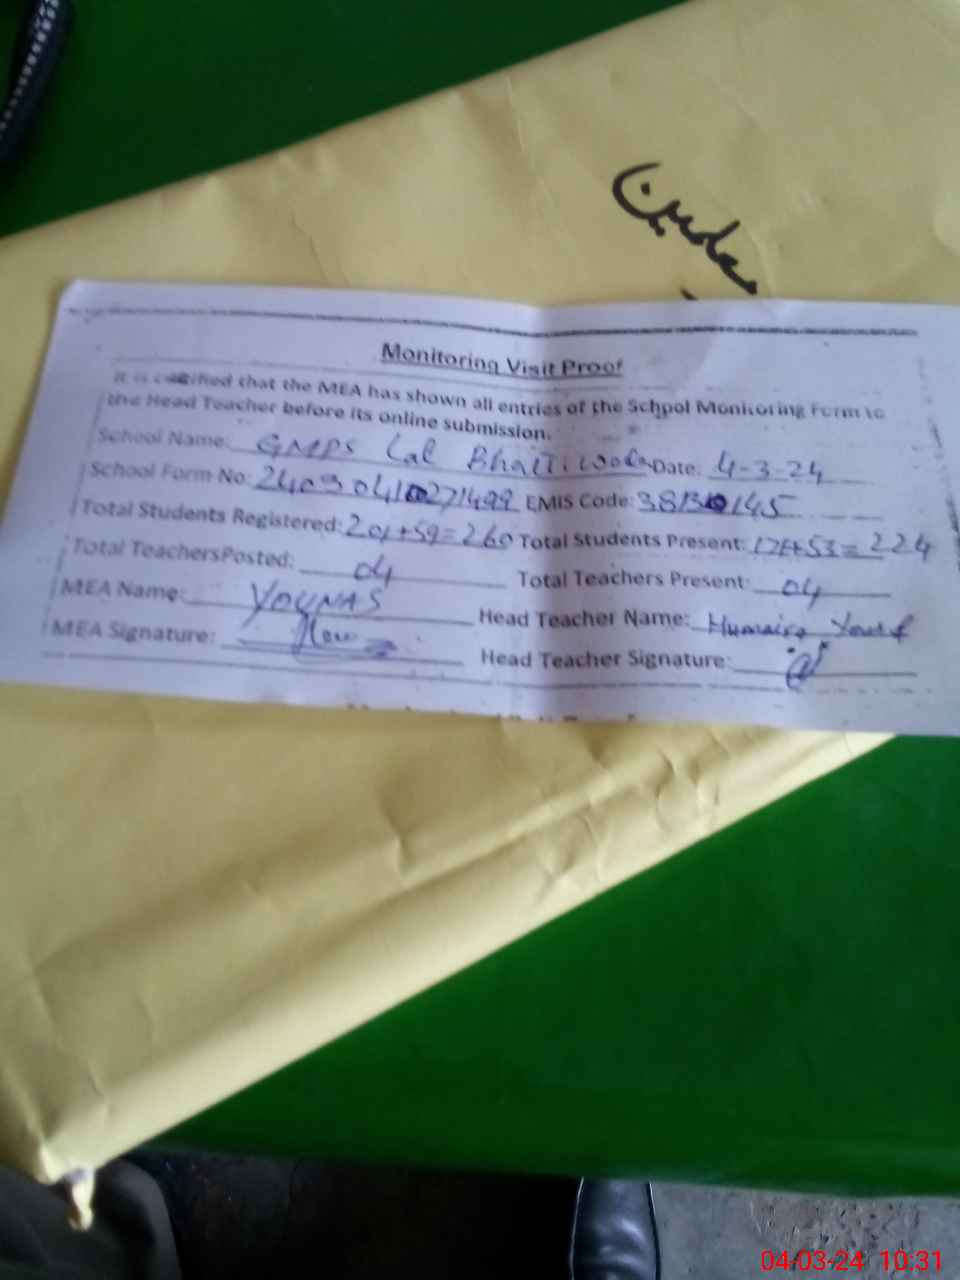 Monitoring Visit Proof
It is certified that the MEA has shown all entries of the School Monitoring Form to
the Head Teacher before its online submission.
School Name: GMPS Lal Bhattiwala Date: 4-3-24
School Form No: EMIS Code:
Total Students Registered: 201+59=260 Total Students Present: 171+53=224
Total TeachersPosted: 04 Total Teachers Present: 04
MEA Name: YOUNAS Head Teacher Name: Humaira Yousaf
MEA Signature: Head Teacher Signature:
04-03-24 10:31